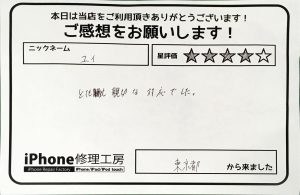 本日は当店をご利用頂きありがとうございます！
ご感想をお願いします！
ニックネーム
星評価
ユイ
とても
対応でした。
iPhone修理工房
iPhone Repair Factory
iPhone/iPad/iPod touch
東京都
から来ました